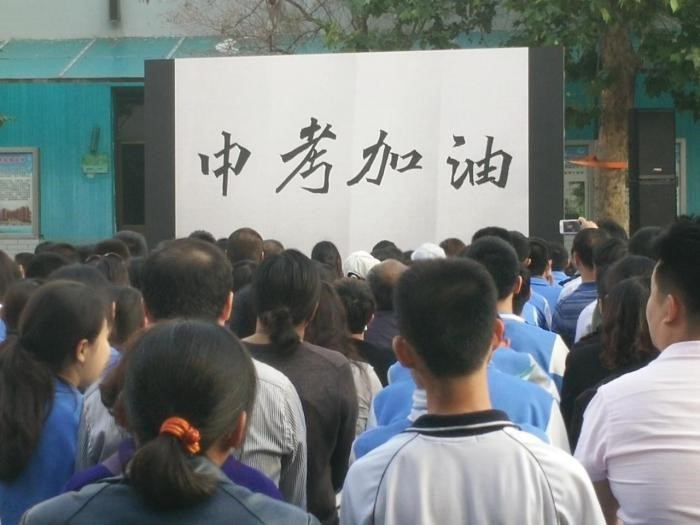 中考加油